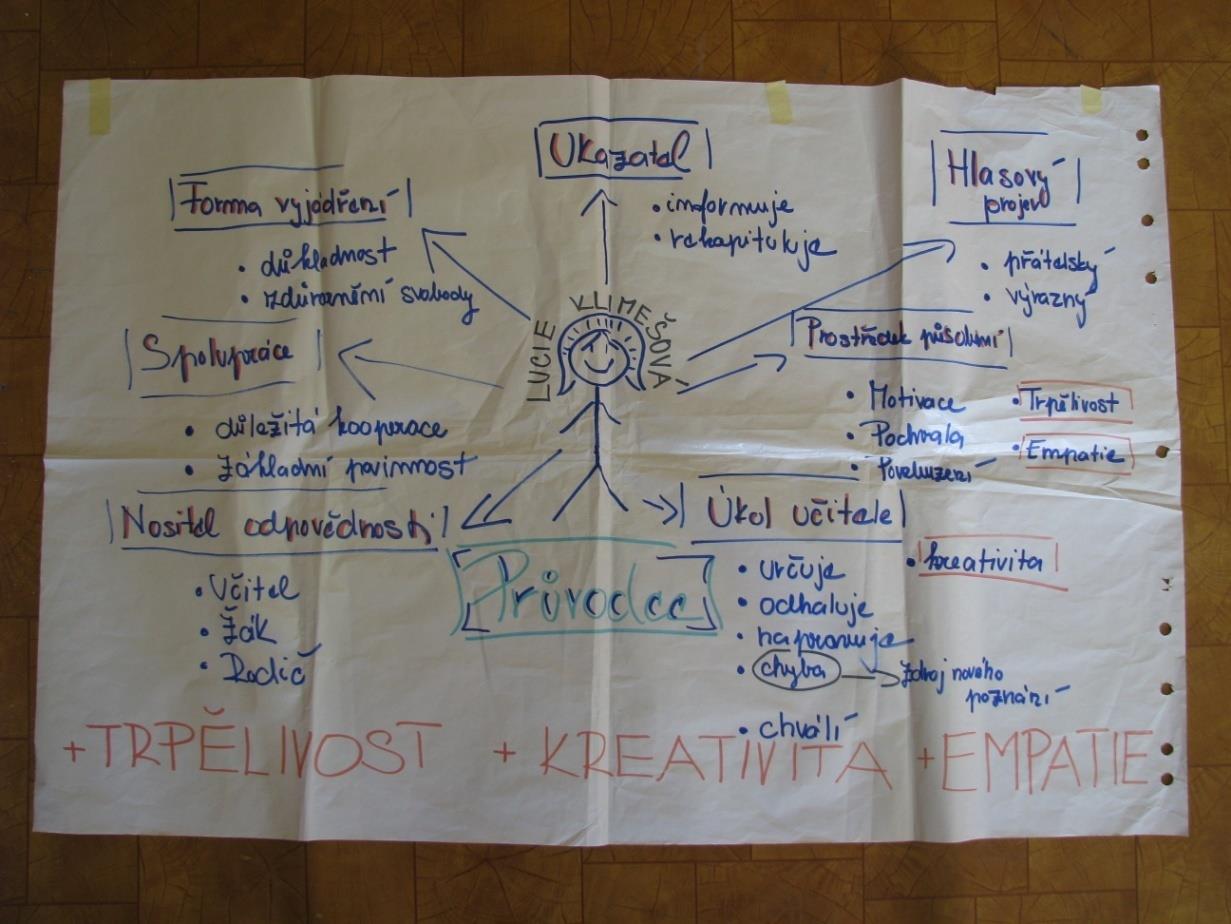 Ukazatel
• informuje
• rekapituluje
Hlasový
projev
• přátelský
• výrazný
Forma vyjádření
• důkladnost
• zdůraznění svobody
LUCIE KLIMEŠOVÁ
Prostředek působení
• Motivace
• Pochvala
• Povzbuzení
• Trpělivost
• Empatie
Spolupráce
• důležitá kooperace
• základní povinnost
Nositel odpovědnosti
• Učitel
• Žák
• Rodič
Průvodce
Úkol učitele
• určuje
• odhaluje
• napravuje
• chyba → zdroj nového
poznání
• chválí
• kreativita
+ TRPĚLIVOST + KREATIVITA + EMPATIE